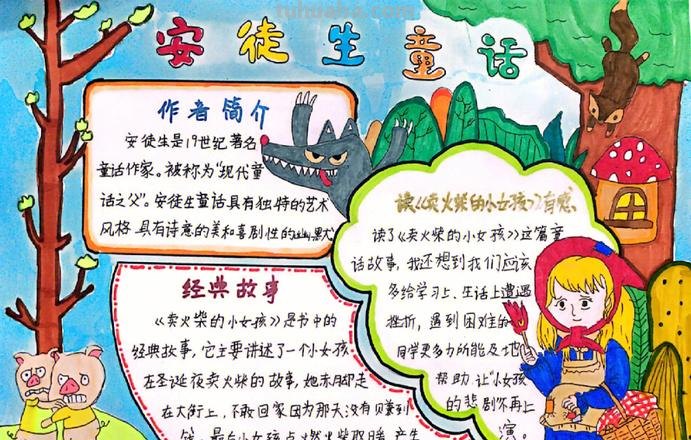 tuhuaba.com
安徒生童话
作者简介
安徒生是19世纪著名
童话作家。被称为“现代童
话之父”。安徒生童话具有独特的艺术
风格,具有诗意的美和喜剧性的幽默
经典故事
《卖火柴的小女孩》是书中的
经典故事,它主要讲述了一个小女孩
在圣诞夜卖火柴的故事,她赤脚走
在大街上,不敢回家因为那天没有赚到
钱,最后小女孩点燃火柴取暖,产生
读《卖火柴的小女孩》有感
读了《卖火柴的小女孩》这篇童
话故事,我还想到我们应该
多给学习上、生活上遭遇
挫折,遇到困难的
同学更多力所能及地
帮助,让“小女孩
的悲剧不再上
演。